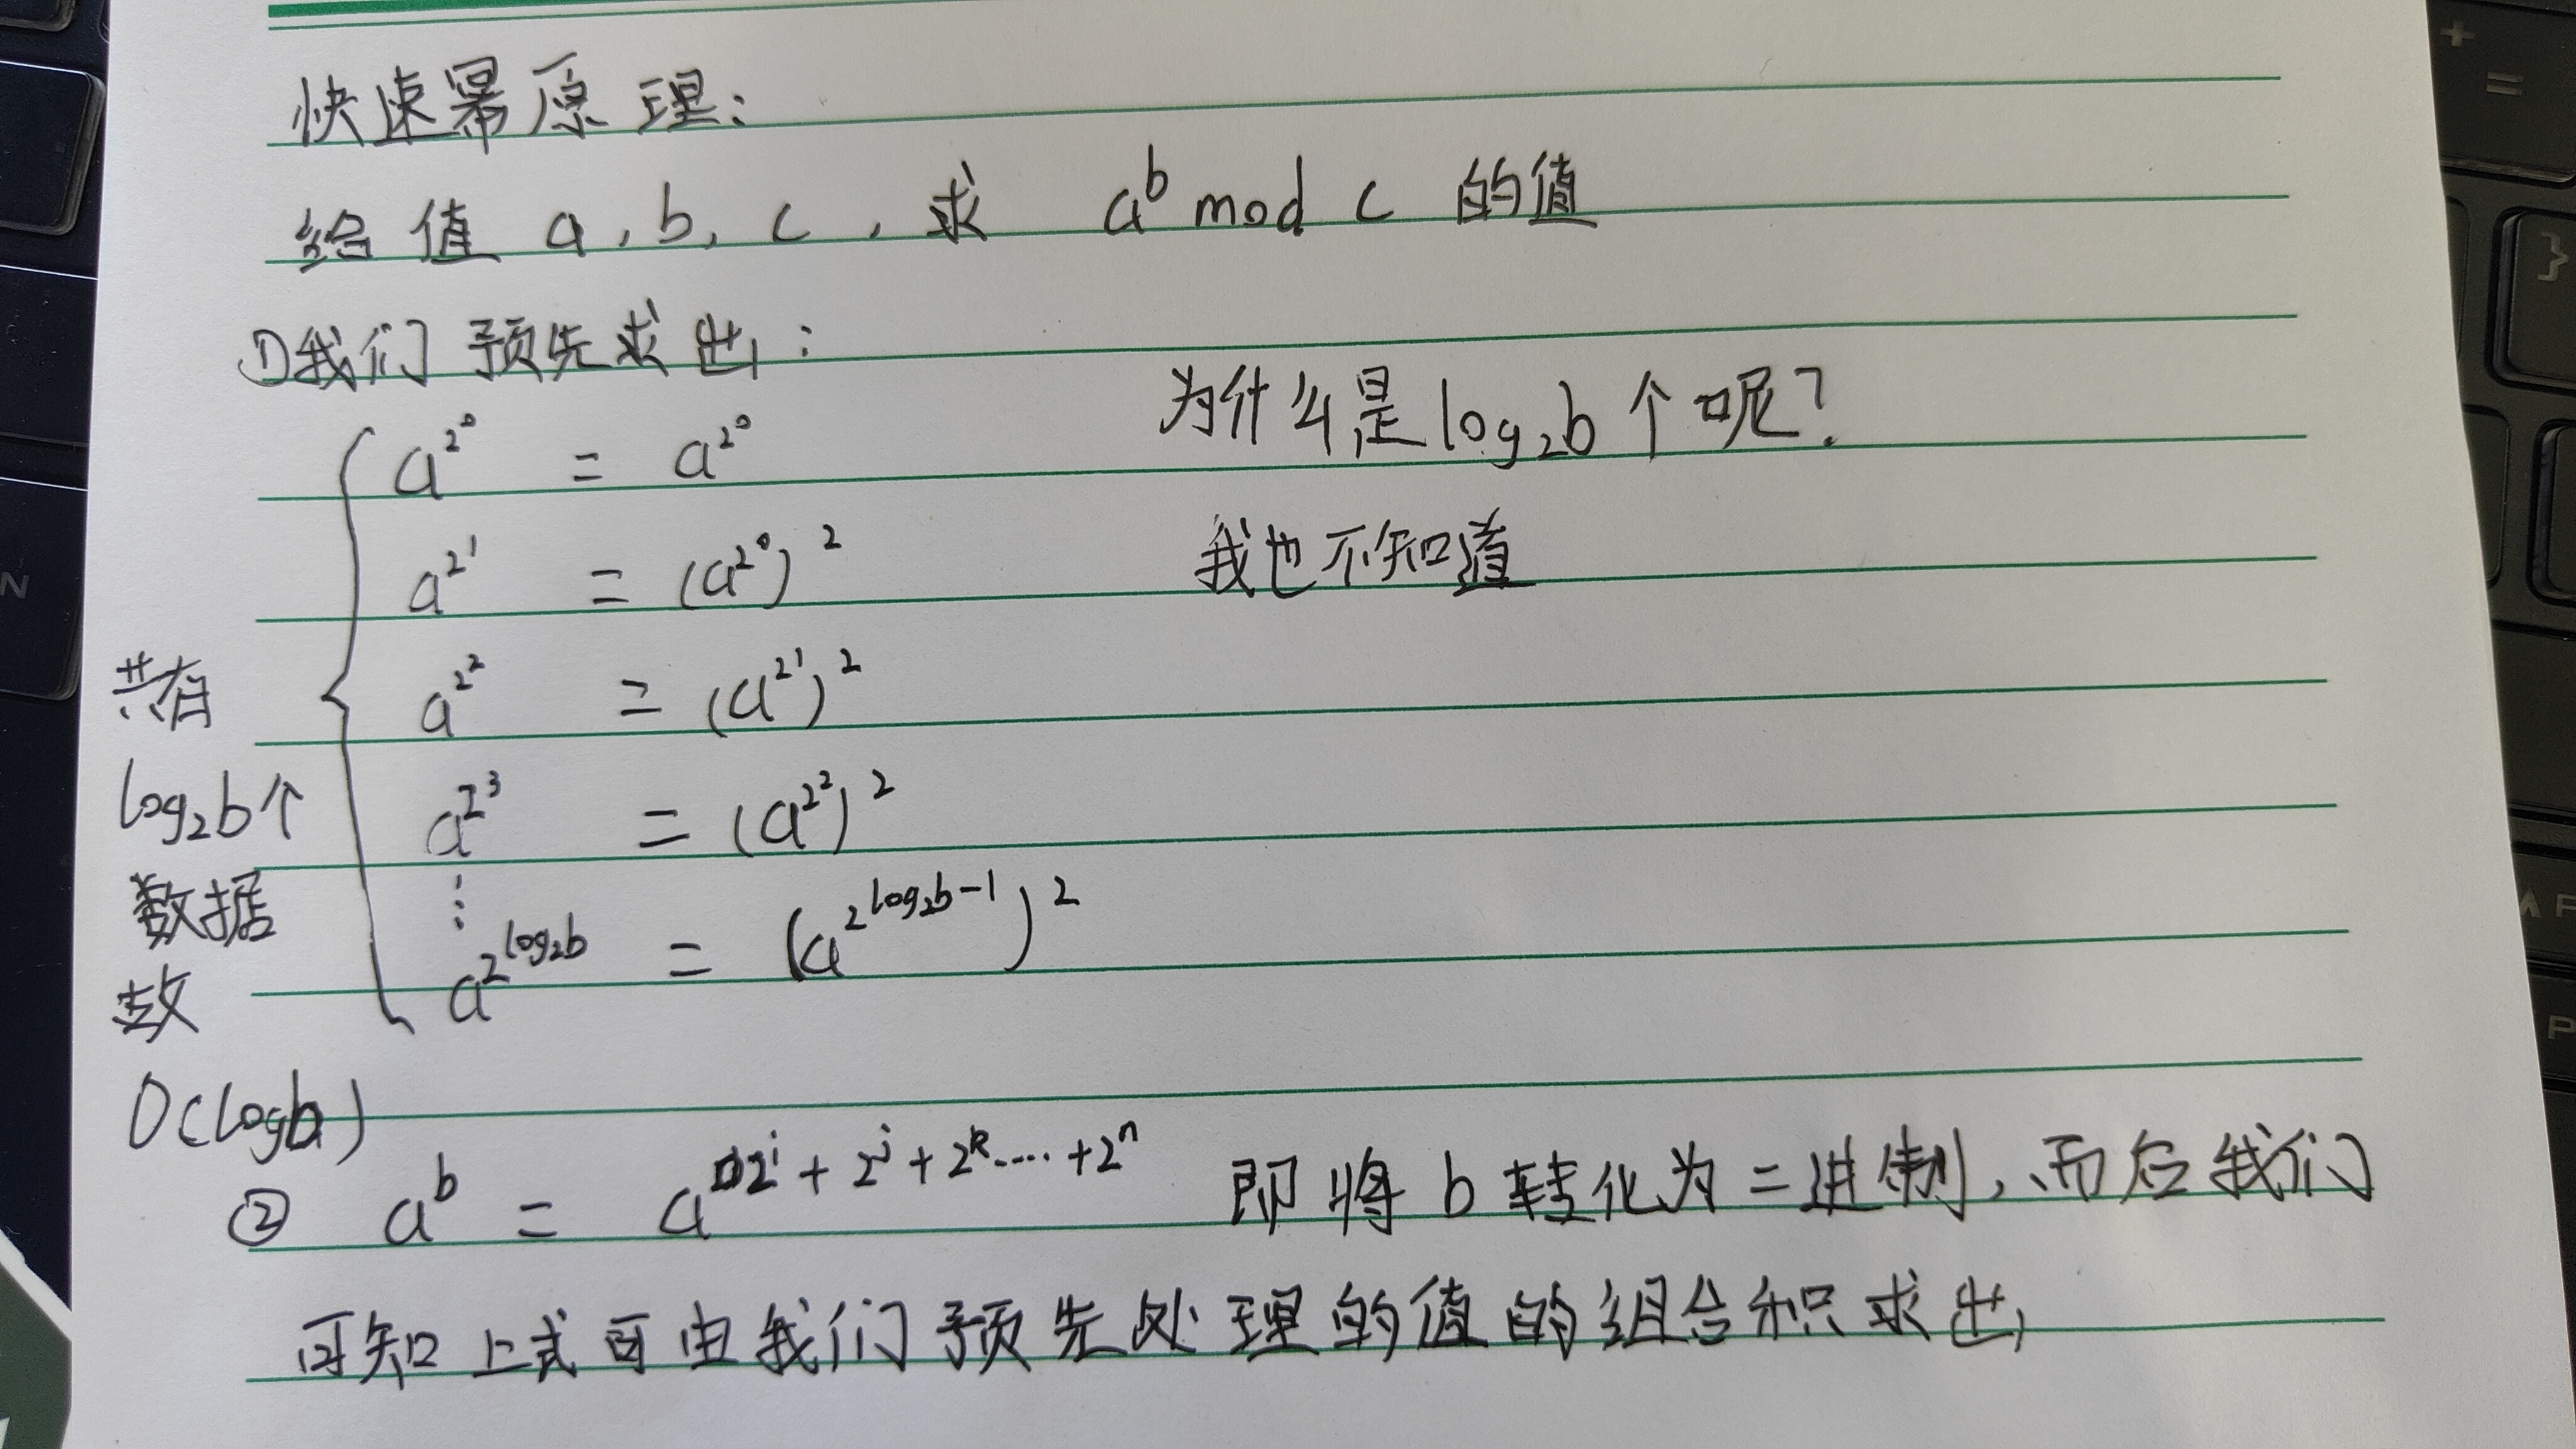 快速幂原理：
给值 a, b, c , 求 a^b mod c 的值
①我们预先求出：
为什么是log₂b个呢？
我也不知道
a^{2^0} = a^{2^0}
a^{2^1} = (a^{2^0})^2
a^{2^2} = (a^{2^1})^2
a^{2^3} = (a^{2^2})^2
⋮
a^{2^{log₂b}} = (a^{2^{log₂b-1}})^2
共有
log₂b个
数据
数
O(logb)
② a^b = a^{2^i + 2^j + 2^k ···· + 2^n} 即将b转化为二进制，而后我们
可知上式可由我们预先处理的值的组合积求出